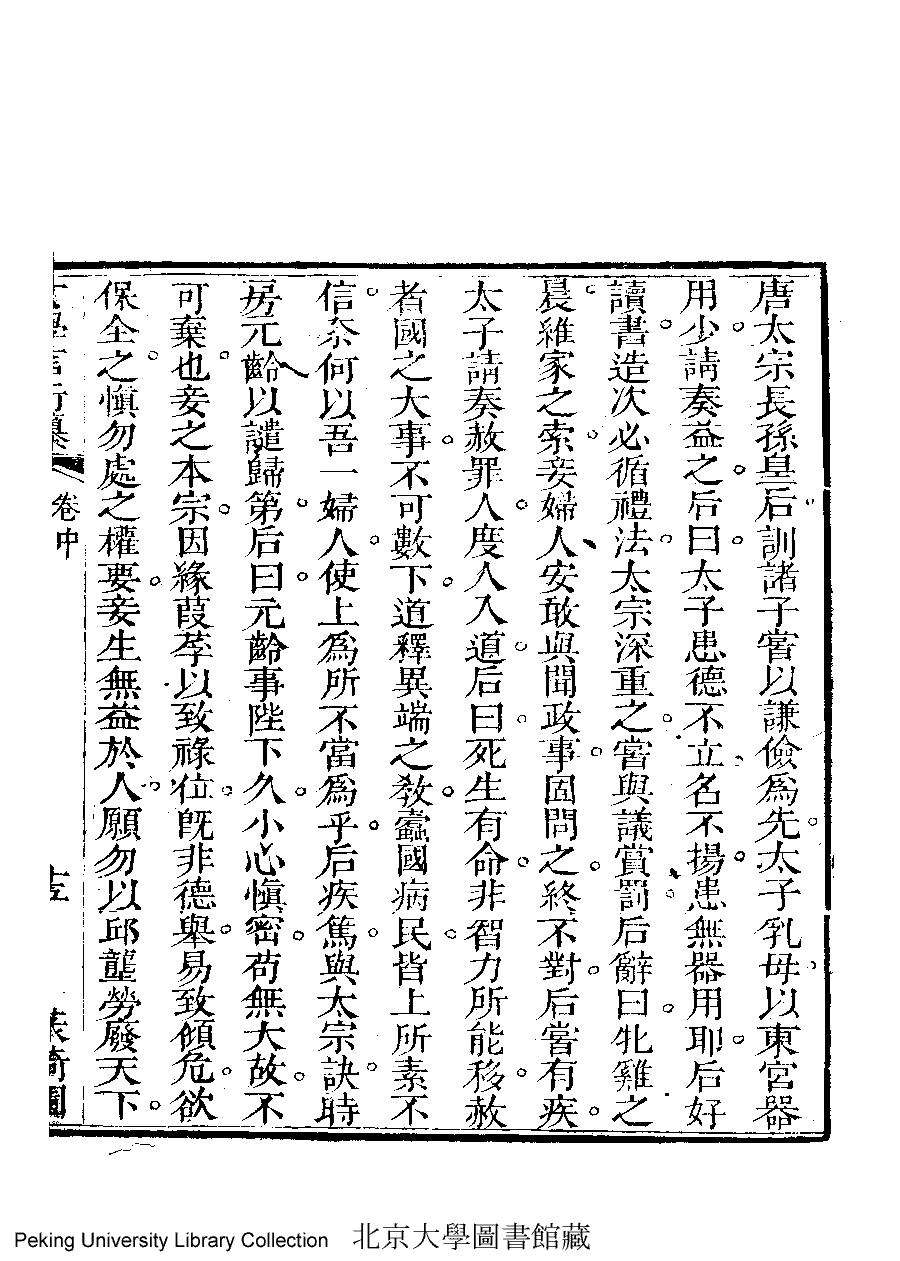 唐太宗長孫皇后訓諸子嘗以謙儉爲先太子乳母以東宮器
用少請奏益之后曰太子患德不立名不揚患無器用耶后好
讀書造次必循禮法太宗深重之嘗與議賞罰后辭曰牝雞之
晨維家之索妾婦人安敢與聞政事固問之終不對后嘗有疾
太子請奏赦罪人度人入道后曰死生有命非智力所能移赦
者國之大事不可數下道釋異端之教蠹國病民皆上所素不
信奈何以吾一婦人使上爲所不當爲乎后疾篤與太宗訣時
房元齡以譴歸第后曰元齡事陛下久小心愼密苟無大故不
可棄也妾之本宗因緣葭莩以致祿位旣非德舉易致傾危欲
保全之愼勿處之權要妾生無益於人願勿以邱壟勞廢天下
卷中
Peking University Library Collection 北京大學圖書館藏